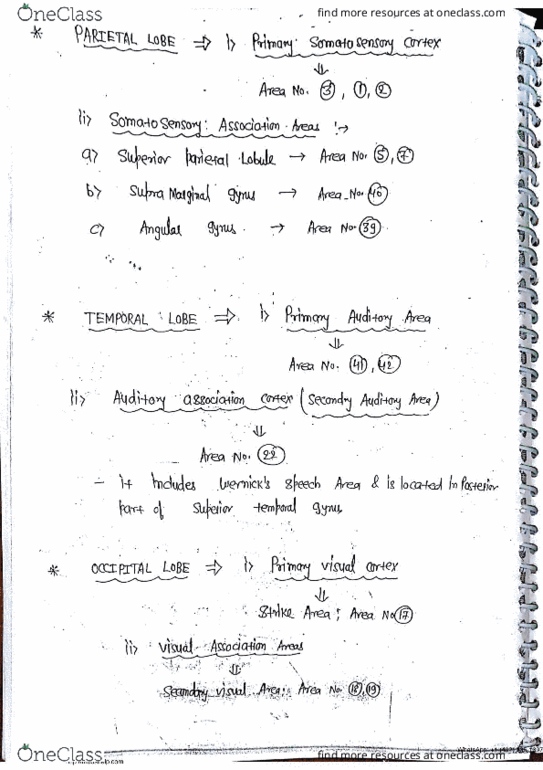 OneClass
find more resources at oneclass.com
* PARIETAL LOBE ⇒ i) Primary Somatosensory Cortex
⇓
Area No. ③, ①, ②
ii) Somatosensory Association Areas :→
a) Superior parietal Lobule → Area No. ⑤, ⑦
b) Supra Marginal gyrus → Area No. 40
c) Angular gyrus → Area No. 39
* TEMPORAL LOBE ⇒ i) Primary Auditory Area
⇓
Area No. 41, 42
ii) Auditory association cortex (Secondry Auditory Area)
⇓
Area No. 22
– it includes Wernick's Speech Area & is located in Posterior
part of Superior temporal gyrus
* OCCIPITAL LOBE ⇒ i) Primary visual cortex
⇓
Strike Area ; Area No 17
ii) visual Association Areas
⇓
Secondry visual Area: Area No 18, 19
OneClass
find more resources at oneclass.com